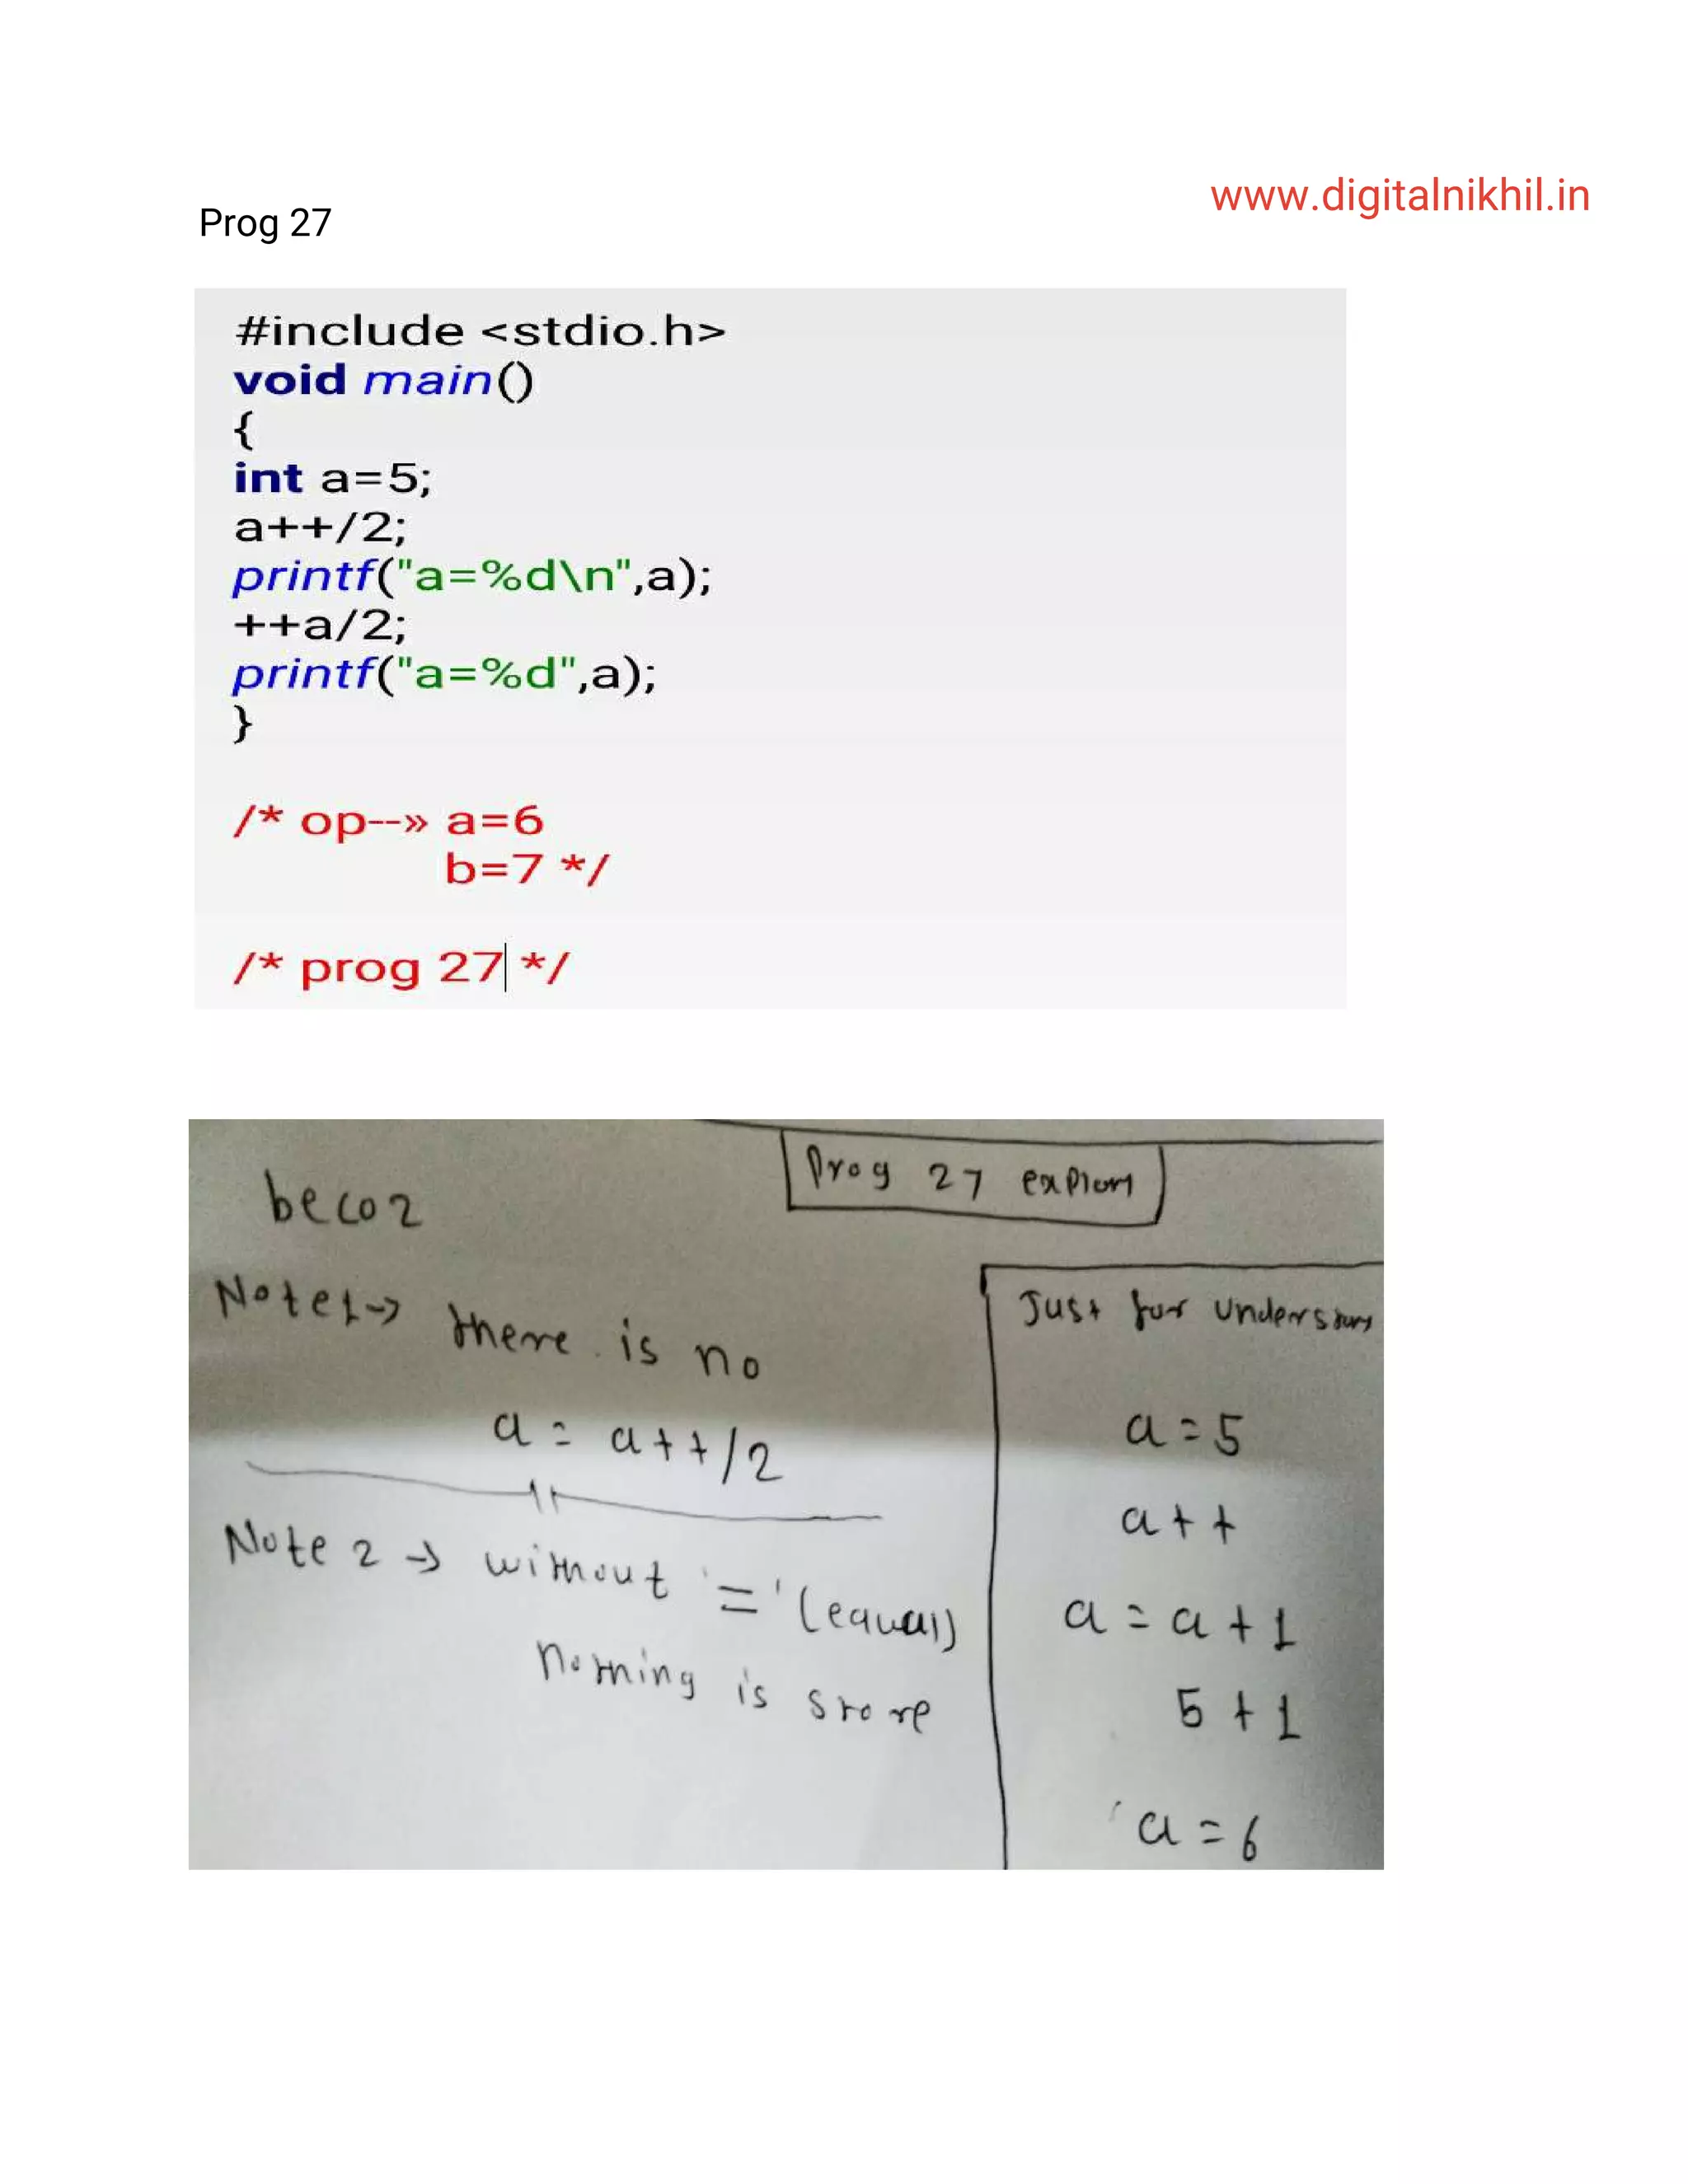 www.digitalnikhil.in
Prog 27
#include <stdio.h>
void main()
{
int a=5;
a++/2;
printf("a=%d\n",a);
++a/2;
printf("a=%d",a);
}
/* op--» a=6
b=7 */
/* prog 27 */
Prog 27
becoz
Note1->
there is no
a = a++/2
Note 2 -> without '=' (equal)
nothing is store
Just for
a = 5
a++
a = a+1
5+1
a = 6